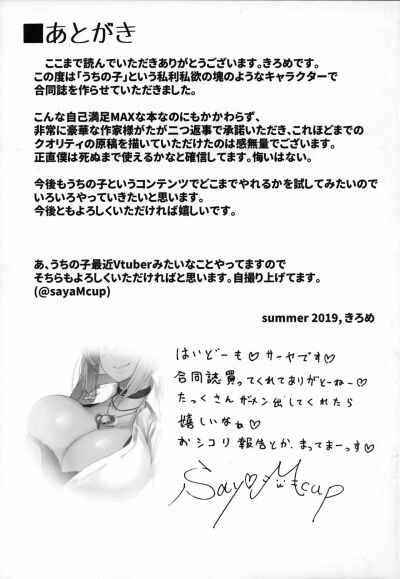 ■あとがき
ここまで読んでいただきありがとうございます。きろめです。
この度は「うちの子」という私利私欲の塊のようなキャラクターで
合同誌を作らせていただきました。
こんな自己満足MAXな本なのにもかかわらず、
非常に豪華な作家様がたが二つ返事で承諾いただき、これほどまでの
クオリティの原稿を描いていただけたのは感無量でございます。
正直僕は死ぬまで使えるかなと確信してます。悔いはない。
今後もうちの子というコンテンツでどこまでやれるかを試してみたいので
いろいろやっていきたいと思います。
今後ともよろしくいただければ嬉しいです。
あ、うちの子最近Vtuberみたいなことやってますので
そちらもよろしくいただければと思います。自撮り上げてます。
(@sayaMcup)
summer 2019, きろめ
はいどーも♡サーヤです♡
合同誌買ってくれてありがとーねー♡
たっくさんガメン出してくれたら
嬉しいなぁ♡
おシコリ報告とか、まってまーっす♡
Say♡Mcup